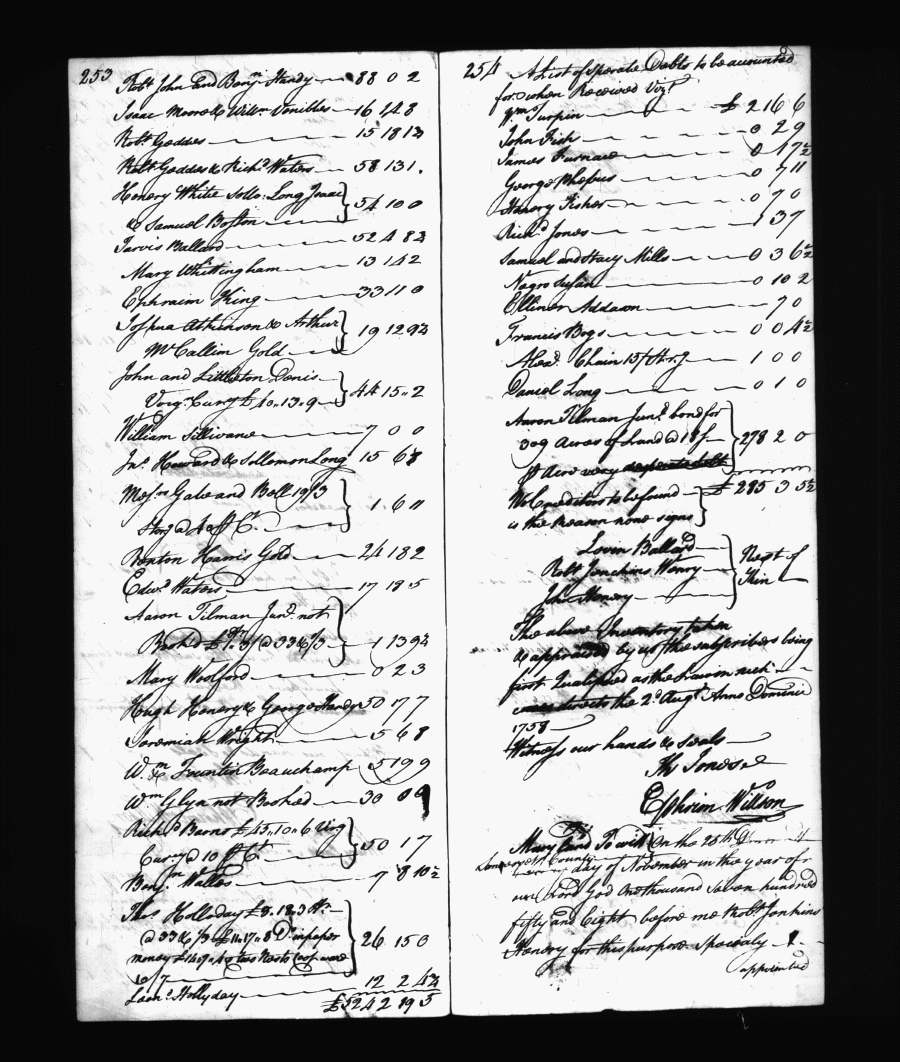 253
Robt John and Benjn Handy 88 0 2
Isaac Moore & Willm Venibles 16 14 8
Robt Geddes 15 18 1¾
Robt Geddes & Richd Waters 58 13 1
Henery White Sollo: Long Isaac
& Samuel Boston 54 10 0
Jarvis Ballard 52 4 8¾
Mary Whittingham 13 14 2
Ephraim King 33 11 0
Joshua Atkinson & Arthur
McCallim Gold 19 12 9¾
John and Littleton Denis
Virga Curry £40..13..9 44 15..2
William Sillivane 7 0 0
Jns Howard & Sollomon Long 15 6 8
Messrs Gale and Bell 19/3
Sterg @ 1 6 11
Benton Harris Gold 24 18 2
Edwd Waters 17 19 5
Aaron Tilman Junr not
Booked @ 33 & /3 1 13 9¾
Mary Woolford 0 2 3
Hugh Henery & George Handy 50 17 7
Jeremiah Wright 5 6 8
Wm & Fountin Beauchamp 5 19 9
Wm Glyn not Booked 30 0 9
Richd Barns £45..10..6 Virg
Curry @ 10 P Ct 50 17
Benjn Walles 7 8 10½
Thos Holleday £8..18..3
@ 33 & /3 £11..17..8 Do in paper
money 26 15 0
Leond Hollyday 12 2 4¾
£5242 19 5
254
A List of Sperate Debts to be accounted
for when Received Vizt
Turpin £2 16 6
John Fish 0 2 9
James Furnace 0 17½
George Phebus 0 7 11
Henery Fisher 0 7 0
Richd Jones 1 3 7
Samuel and Stacy Mills 0 3 6½
Negro 0 10 2
Ellinor Addams 7 0
Francis Bogs 0 0 4½
Alexd Chain 15/ 1 0 0
Daniel Long 0 1 0
Aaron Tilman Junr bond for
309 Acres of Land @ 18/
P Acre very desperate debt 278 2 0
No Creeditors to be found £285 3 5½
is the Reason none signs
Levin Ballard
Robt Jenckins Henry
John Henery
Next of
Kin
The above Inventory taken
& appraised by us the subscribers being
first Qualified as the Law in such
cases directs the 2d Augt Anno Dominie
1758
Witness our hands & seals
Th Jones
Ephrim Willson
Mary Land To witt On the 25th
Somerset County day of November in the year of
our Lord God One thousand seven hundred
fifty and Eight before me Robt Jenkins
Henery for this purpose Specialy
appointed